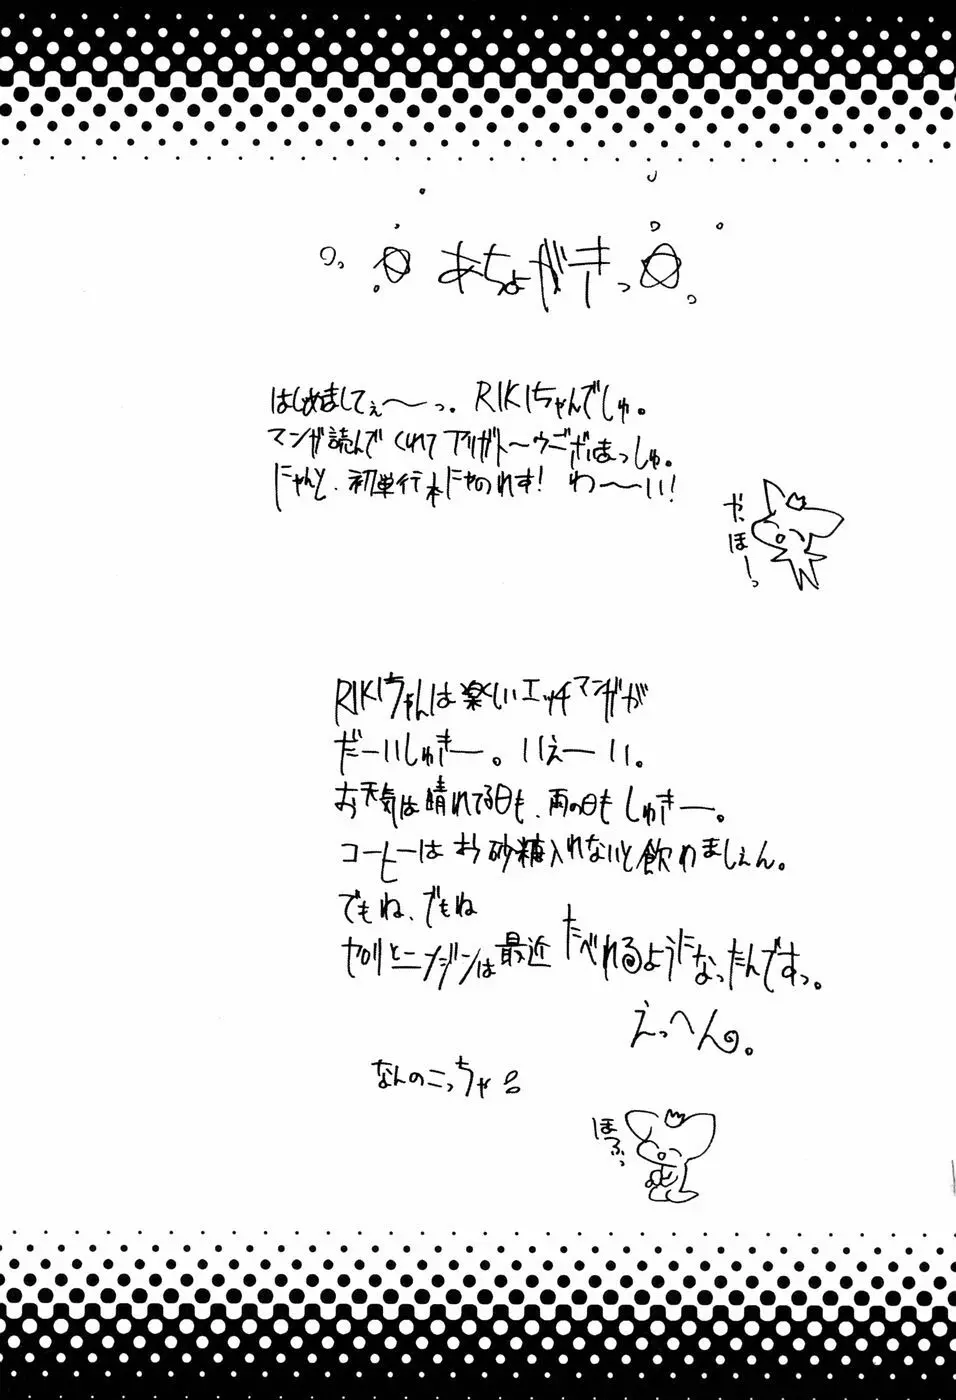 あちょがきっ
はじめましてぇ〜っ。RIKIちゃんでしゅ。
マンガ読んでくれてアリガト〜ウございまっしゅ。
にゃんと、初単行本にゃのれす！ わ〜い！
やっほーっ
RIKIちゃんは楽しいエッチマンガが
だーいしゅきー。いえーい。
お天気は晴れてる日も、雨の日もしゅきー。
コーヒーはお砂糖入れないと飲めましぇん。
でもね、でもね
セロリとニンジンは最近たべれるようになったんですっ。
えっへん。
なんのこっちゃ
ほふっ